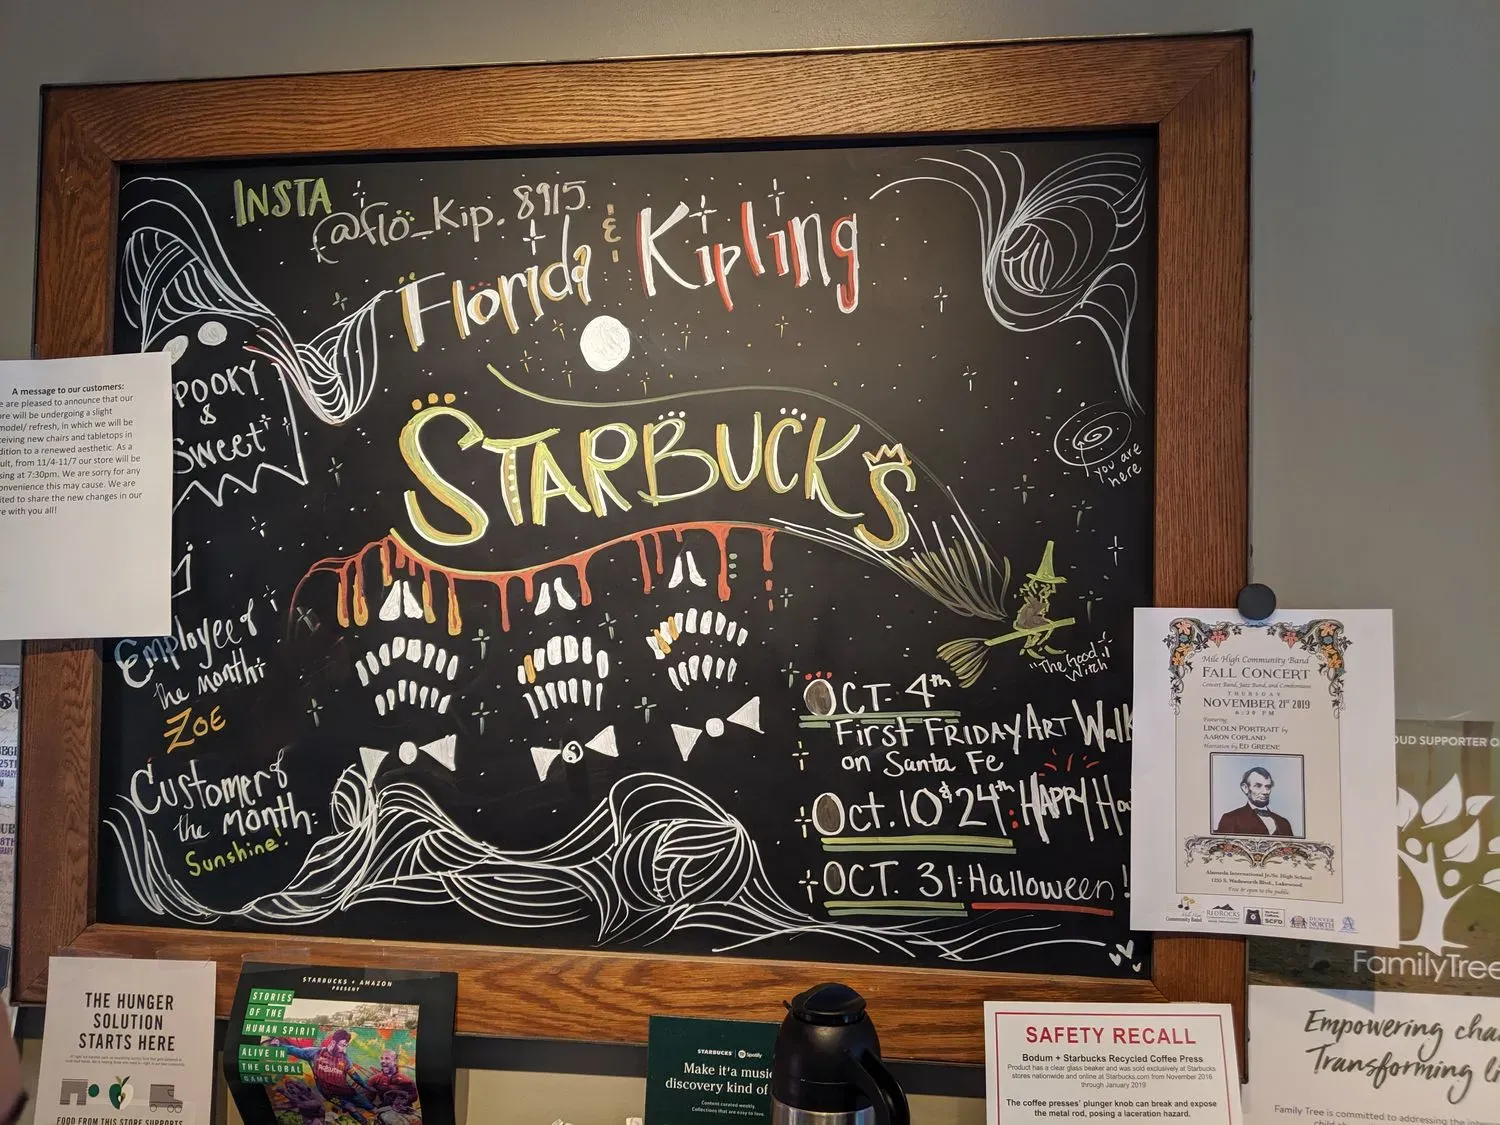 INSTA
@flo_Kip.8915
Florida & Kipling
STARBUCKS
POOKY
&
SWEET
you are
here
"The Good
Witch
Employee of
the month:
ZOE
Customer of
the Month:
Sunshine!
OCT. 4th
First FRIDAY Art Walk
on Santa Fe
Oct. 10 & 24th: HAPPY Ho
OCT. 31: Halloween!
A message to our customers:
e are pleased to announce that our
re will be undergoing a slight
model/ refresh, in which we will be
ceiving new chairs and tabletops in
dition to a renewed aesthetic. As a
ult, from 11/4-11/7 our store will be
sing at 7:30pm. We are sorry for any
onvenience this may cause. We are
ited to share the new changes in our
re with you all!
Mile High Community Band
FALL CONCERT
Concert Band, Jazz Band, and Combonians
THURSDAY
NOVEMBER 21st 2019
6:30 PM
Featuring
LINCOLN PORTRAIT by
AARON COPLAND
Narration by ED GREENE
Alameda International Jr./Sr. High School
1255 S. Wadsworth Blvd., Lakewood
Free & open to the public
Community Band
REDROCKS
SCFD
DENVER
NORTH
OUD SUPPORTER O
FamilyTree
Empowering cha
Transforming li
Family Tree is committed to addressing the inter
THE HUNGER
SOLUTION
STARTS HERE
FOOD FROM THIS STORE SUPPORTS
STARBUCKS + AMAZON
PRESENT
STORIES
OF THE
HUMAN SPIRIT
ALIVE IN
THE GLOBAL
GAME
Rakuten
STARBUCKS | Spotify
Make it a music
discovery kind of
Content curated weekly.
Collections that are easy to love.
SAFETY RECALL
Bodum + Starbucks Recycled Coffee Press
Product has a clear glass beaker and was sold exclusively at Starbucks
stores nationwide and online at Starbucks.com from November 2016
through January 2019
The coffee presses' plunger knob can break and expose
the metal rod, posing a laceration hazard.